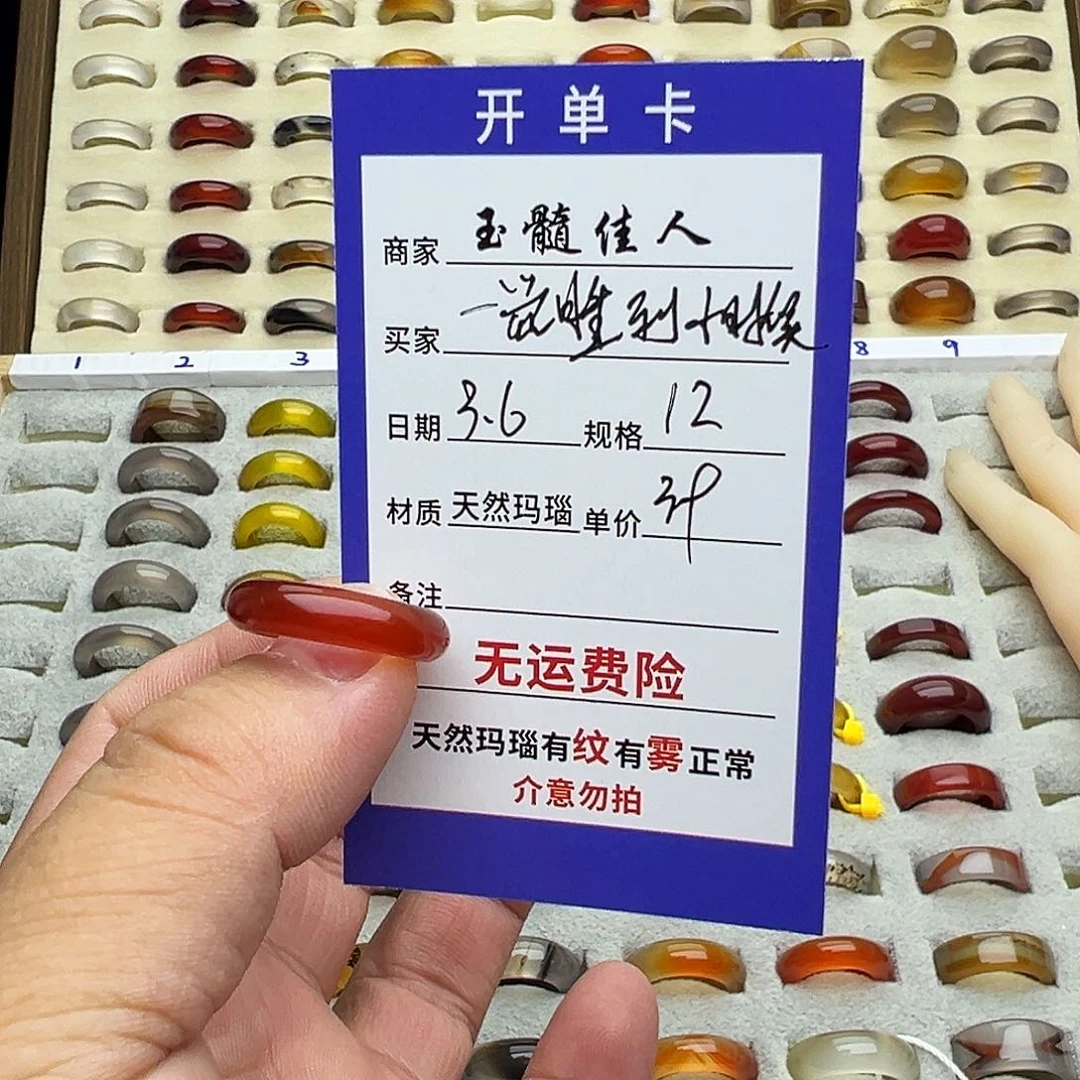 开单卡
商家 玉髓佳人
买家
日期 3.6 规格 12
材质 天然玛瑙 单价
备注
无运费险
天然玛瑙有纹有雾正常
介意勿拍
1 2 3 8 9